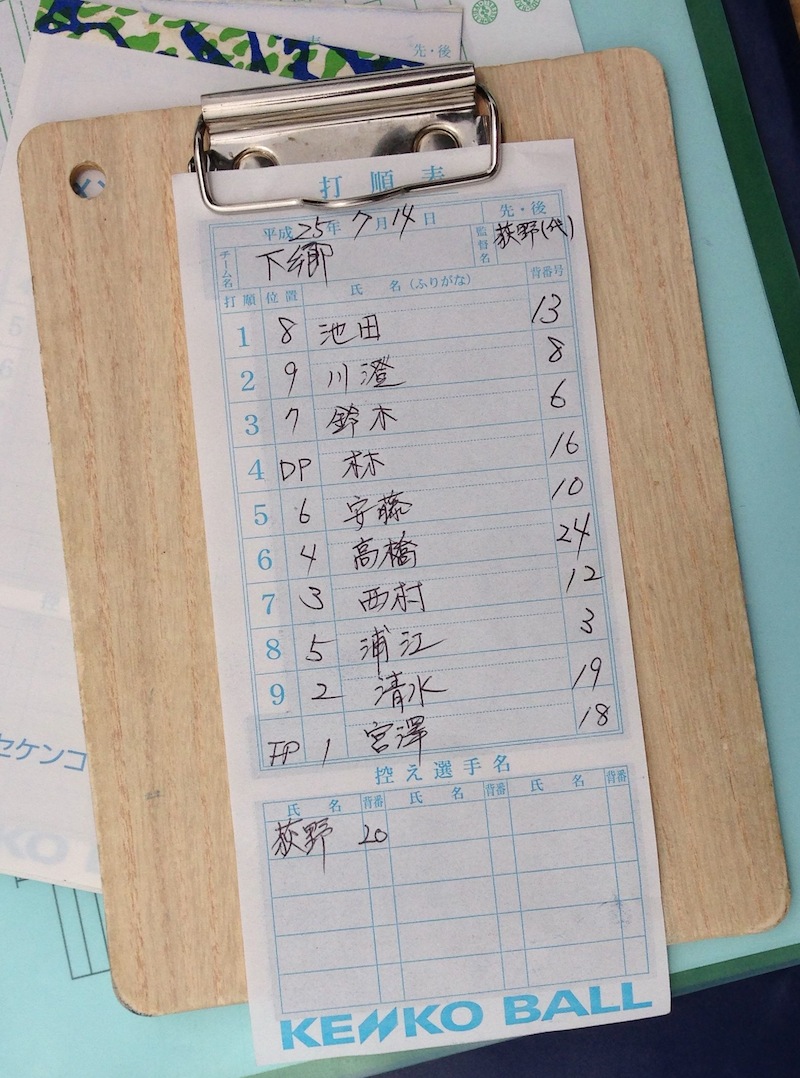 先・後
打順表
平成25年7月14日 先・後
チーム名 下郷 監督名 荻野(代)
打順 位置 氏 名(ふりがな) 背番号
1 8 池田 13
2 9 川澄 8
3 7 鈴木 6
4 DP 林 16
5 6 安藤 10
6 4 高橋 24
7 3 西村 12
8 5 浦江 3
9 2 清水 19
FP 1 宮澤 18
控え選手名
氏 名 背番 氏 名 背番 氏 名 背番
荻野 20
KENKO BALL
セケンコ
KO B